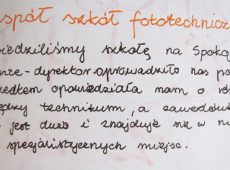 spół szkół fototechnicz
iedziliśmy szkołę na Spoko
ce-dyrektor oprowadziła nas po
opowiedziała nam o
technikum, a zawodow
jest dużo i znajduje się w
specjalistycznych miejsc.